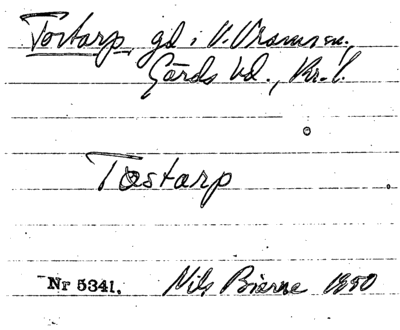 Tostarp, gd i V. Vram sn.,
Gärds hd., Kr. l.
Tostarp
Nr 5341. Nils Bierne 1880